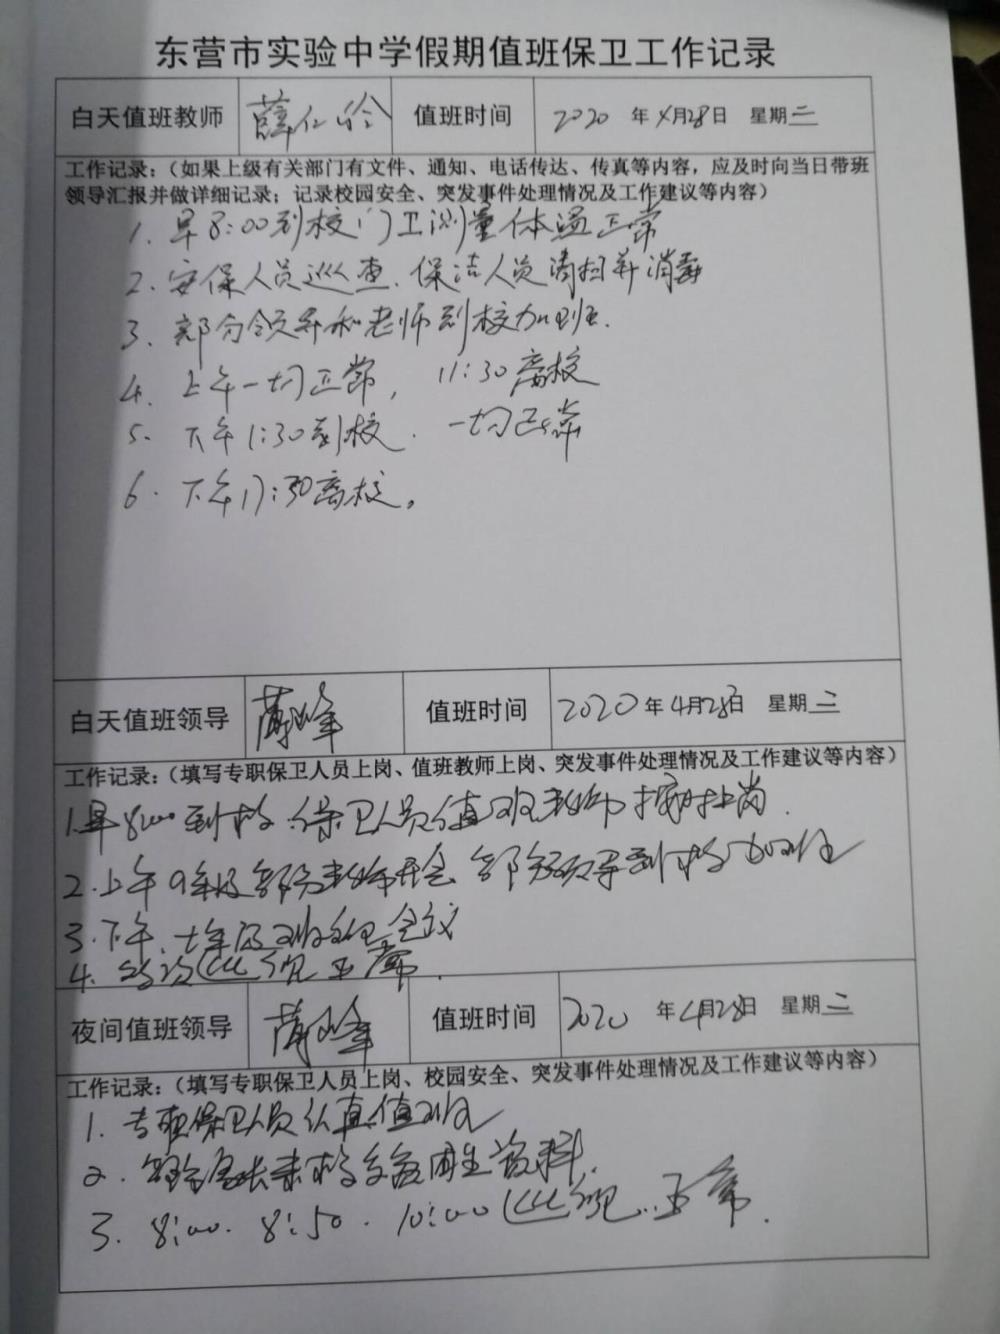 东营市实验中学假期值班保卫工作记录
白天值班教师 薛仁玲 值班时间 2020 年 4月28日 星期二
工作记录：（如果上级有关部门有文件、通知、电话传达、传真等内容，应及时向当日带班
领导汇报并做详细记录；记录校园安全、突发事件处理情况及工作建议等内容）
1. 早8:00到校门卫测量体温正常
2. 安保人员巡查．保洁人员清扫并消毒
3. 部分领导和老师到校加班.
4. 上午一切正常， 11:30离校
5. 下午1:30到校. 一切正常
6. 下午17:30离校。
白天值班领导 值班时间 2020年4月28日 星期二
工作记录：（填写专职保卫人员上岗、值班教师上岗、突发事件处理情况及工作建议等内容）
1.早8:00到校.保卫人员值班教师按时上岗.
2.上午9年级部分教师开会 部分领导到校加班
3.下午.七年级 会议
4. 巡视正常.
夜间值班领导 值班时间 2020 年4月28日 星期二
工作记录：（填写专职保卫人员上岗、校园安全、突发事件处理情况及工作建议等内容）
1. 专职保卫人员认真值班
2. 家长来校 生资料.
3. 8:00. 8:50. 10:00巡视.正常.